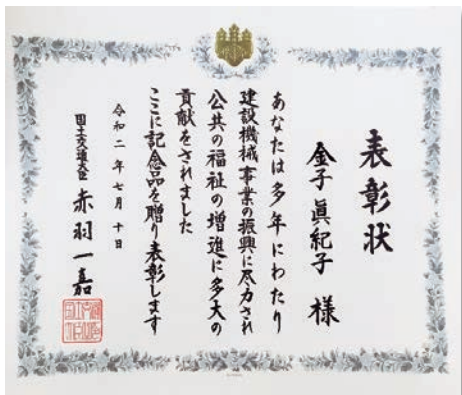 表彰状
金子眞紀子様
あなたは多年にわたり
建設機械事業の振興に尽力され
公共の福祉の増進に多大の
貢献をされました
ここに記念品を贈り表彰します
令和二年七月十日
国土交通大臣 赤羽一嘉